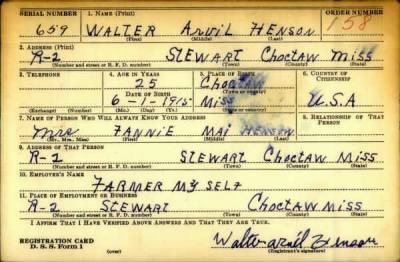 SERIAL NUMBER 1. NAME (Print) ORDER NUMBER
659 WALTER Anvil HENSON 58
(First) (Middle) (Last)
2. ADDRESS (Print)
R-2 STEWART CHOCTAW MISS
(Number and street or R. F. D. number) (Town) (County) (State)
3. TELEPHONE 4. AGE IN YEARS 5. PLACE OF BIRTH 6. COUNTRY OF CITIZENSHIP
25 Choctaw
DATE OF BIRTH (Town or county)
6-1-1915 Miss U.S.A
(Exchange) (Number) (Mo.) (Day) (Yr.) (State or country)
7. NAME OF PERSON WHO WILL ALWAYS KNOW YOUR ADDRESS 8. RELATIONSHIP OF THAT PERSON
Mrs FANNIE MAI HENSON
(Mr., Mrs., Miss) (First) (Middle) (Last)
9. ADDRESS OF THAT PERSON
R-1 STEWART CHOCTAW MISS
(Number and street or R. F. D. number) (Town) (County) (State)
10. EMPLOYER'S NAME
FARMER MY SELF
11. PLACE OF EMPLOYMENT OR BUSINESS
R-2 STEWART CHOCTAW MISS
(Number and street or R. F. D. number) (Town) (County) (State)
I AFFIRM THAT I HAVE VERIFIED ABOVE ANSWERS AND THAT THEY ARE TRUE.
REGISTRATION CARD
D. S. S. Form 1 (over) Walter Henson
(Registrant's signature)